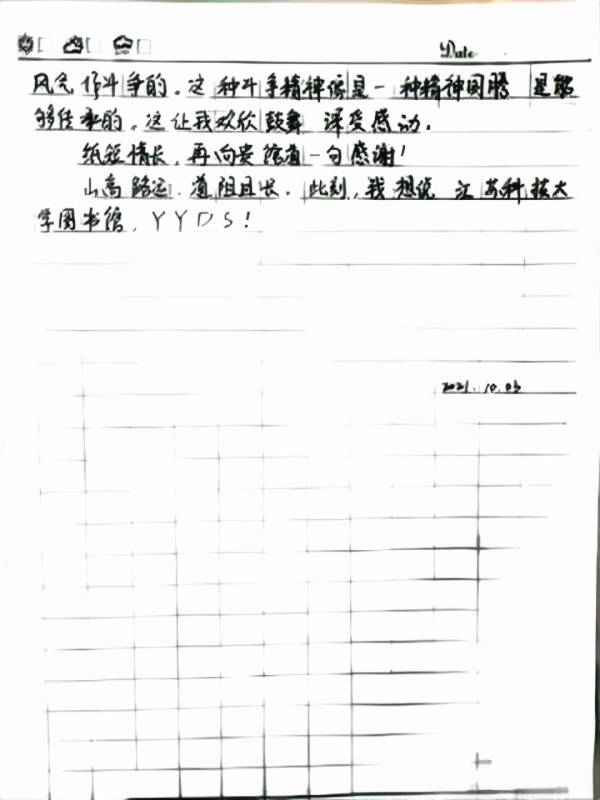 Date
风气作斗争的。这种斗争精神该是一种精神图腾 是能
够传承的。这让我欢欣鼓舞 深受感动。
纸短情长,再向贵馆道一句感谢!
山高路远,道阻且长。此刻,我想说 江苏科技大
学图书馆,YYDS!
2021.10.03